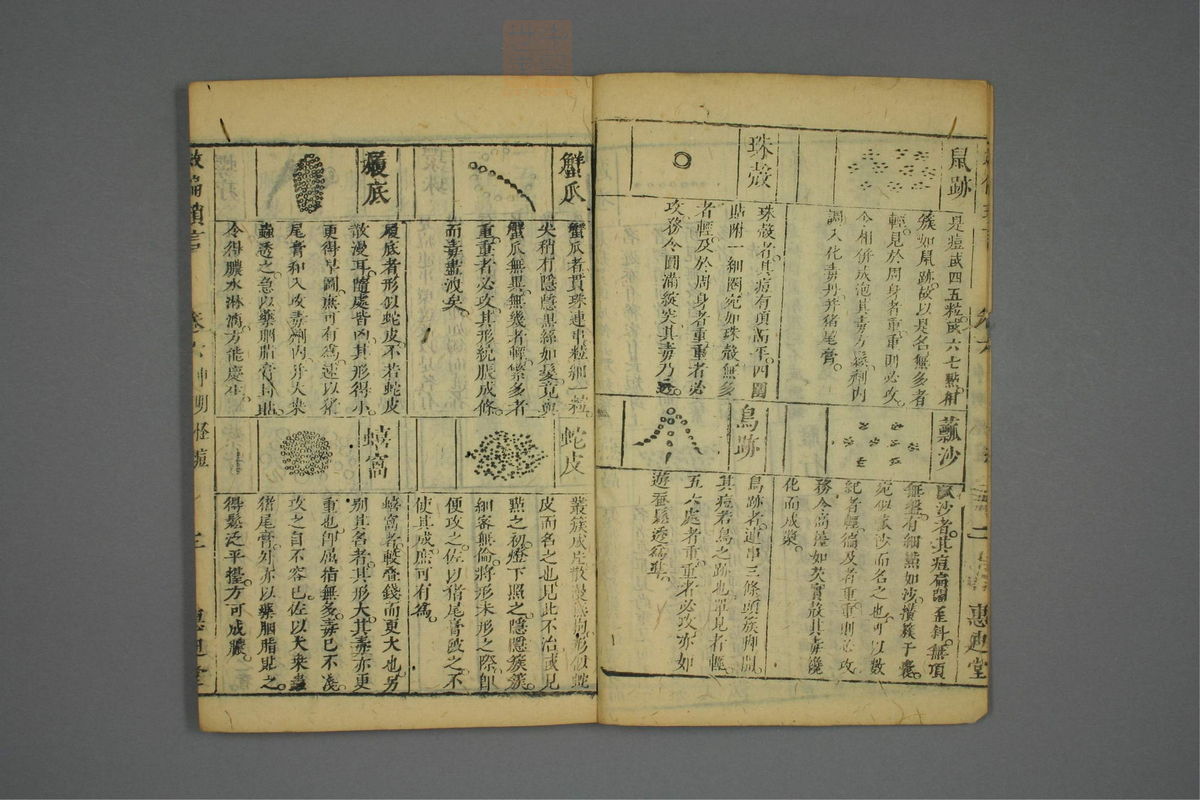 鼠跡
是痘或四五粒或六七點攢
簇如鼠跡故以是名無多者
輕見於周身者重重則必攻
令相併成泡其毒方鬆劑內
調入化毒丹并豬尾膏
珠殼
珠殼者其痘有頂高平四圍
貼附一細圈宛如珠殼無多
者輕及於周身者重重者必
攻務令圓滿綻突其毒乃透
瓢沙
瓢沙者其痘
無盤有細點如沙攢簇于裏
宛似瓢沙而名之也可以數
紀者輕徧及者重重則必攻
務令高擡如芡實殼其毒纔
化而成漿
鳥跡
鳥跡者連串三條頭簇腳開
其痘若鳥之跡也單見者輕
五六處者重重者必攻亦如
遊蚕鬆透
惠迪堂
蟹爪
蟹爪者貫珠連串粒細一粒
尖稍有隱隱黑絲如髮竟與
蟹爪無異無幾者輕繁多者
重重者必攻其形統脹成條
而毒盡洩矣
履底
履底者形似蛇皮不若蛇皮
散漫耳隨處皆凶其形得小
更得早圖庶可有為速以豬
尾膏和入攻毒劑內并大桑
蟲透之急以藥胭脂膏上貼
令得膿水淋漓方能慶生
蛇皮
叢簇成片散漫無拘形似蛇
皮而名之也見此不治或見
點之初燈下照之隱隱簇簇
細密無倫將形未形之際即
便攻之佐以豬尾膏啟之不
使其成庶可有為
蟢窩
蟢窩者較疊錢而更大也另
別其名者其形大其毒亦更
重也即屈指無多毒已不淺
攻之自不容已佐以大桑蟲
豬尾膏外亦以藥胭脂貼之
得鬆泛平擡方可成膿
救偏瑣言
卷六
神明
怪痘
惠迪堂